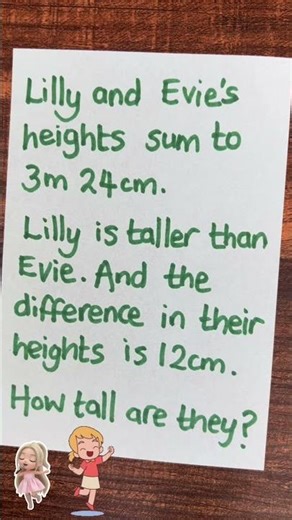 Lilly and Evie's
heights sum to
3m 24cm.
Lilly is taller than
Evie. And the
difference in their
heights is 12cm.
How tall are they?